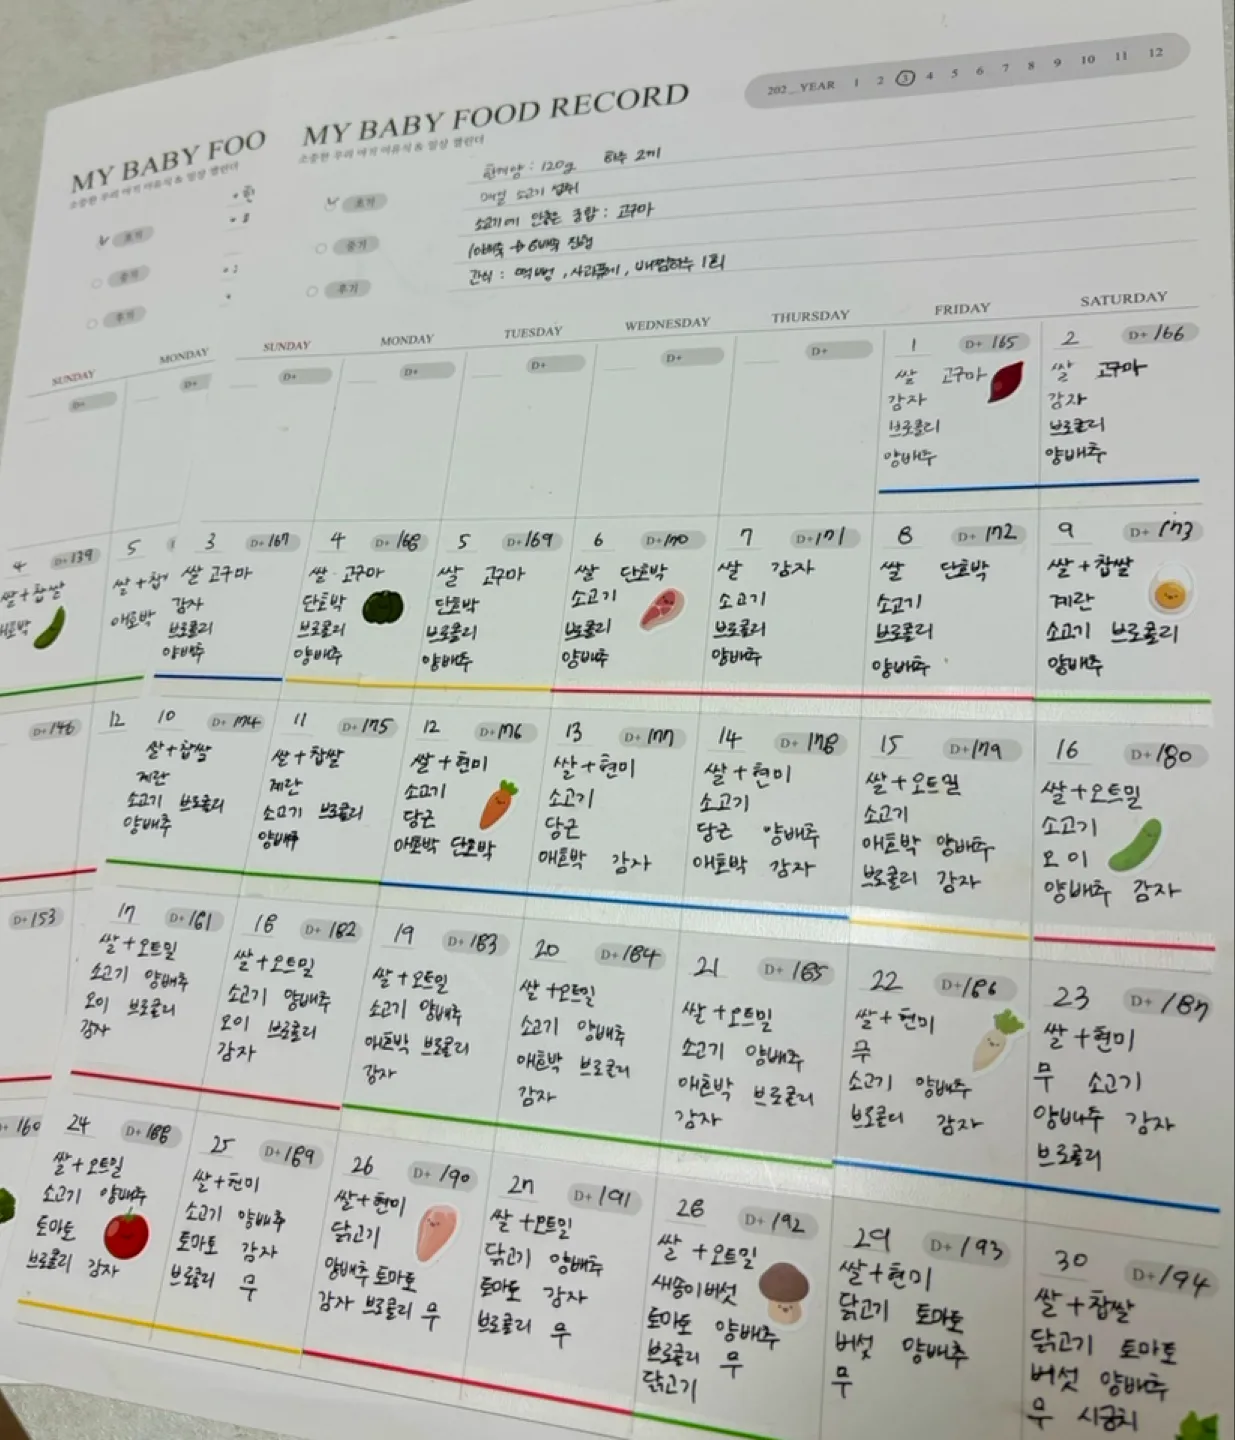 MY BABY FOO
소중한 우리 아기 이유식 & 일상 캘린더
초기
중기
후기
SUNDAY
MONDAY
D+
D+
4 D+139
쌀+찹쌀
애호박
5
애호박
D+146
12
D+153
MY BABY FOOD RECORD
소중한 우리 아기 이유식 & 일상 캘린더
202_YEAR 1 2 3 4 5 6 7 8 9 10 11 12
초기
중기
후기
한끼양 : 120g 하루 2끼
매일 소고기 섭취
소고기에 안좋은 궁합 : 고구마
10배죽 → 6배죽 진행
간식 : 떡뻥, 사과퓨레, 배찜하루 1회
SUNDAY MONDAY TUESDAY WEDNESDAY THURSDAY FRIDAY SATURDAY
D+ D+ D+ D+ D+
1 D+165
쌀 고구마
감자
브로콜리
양배추
2 D+166
쌀 고구마
감자
브로콜리
양배추
3 D+167
쌀 고구마
감자
브로콜리
양배추
4 D+168
쌀 고구마
단호박
브로콜리
양배추
5 D+169
쌀 고구마
단호박
브로콜리
양배추
6 D+170
쌀 단호박
소고기
브로콜리
양배추
7 D+171
쌀 감자
소고기
브로콜리
양배추
8 D+172
쌀 단호박
소고기
브로콜리
양배추
9 D+173
쌀+찹쌀
계란
소고기 브로콜리
양배추
10 D+174
쌀+찹쌀
계란
소고기 브로콜리
양배추
11 D+175
쌀+찹쌀
계란
소고기 브로콜리
양배추
12 D+176
쌀+현미
소고기
당근
애호박 단호박
13 D+177
쌀+현미
소고기
당근
애호박 감자
14 D+178
쌀+현미
소고기
당근 양배추
애호박 감자
15 D+179
쌀+오트밀
소고기
애호박 양배추
브로콜리 감자
16 D+180
쌀+오트밀
소고기
오이
양배추 감자
17 D+181
쌀+오트밀
소고기 양배추
오이 브로콜리
감자
18 D+182
쌀+오트밀
소고기 양배추
오이 브로콜리
감자
19 D+183
쌀+오트밀
소고기 양배추
애호박 브로콜리
감자
20 D+184
쌀+오트밀
소고기 양배추
애호박 브로콜리
감자
21 D+185
쌀+오트밀
소고기 양배추
애호박 브로콜리
감자
22 D+186
쌀+현미
무
소고기 양배추
브로콜리 감자
23 D+187
쌀+현미
무 소고기
양배추 감자
브로콜리
24 D+188
쌀+오트밀
소고기 양배추
토마토
브로콜리 감자
25 D+189
쌀+현미
소고기 양배추
토마토 감자
브로콜리 무
26 D+190
쌀+현미
닭고기
양배추 토마토
감자 브로콜리 무
27 D+191
쌀+오트밀
닭고기 양배추
토마토 감자
브로콜리 무
28 D+192
쌀+오트밀
새송이버섯
토마토 양배추
브로콜리 무
닭고기
29 D+193
쌀+현미
닭고기 토마토
버섯 양배추
무
30 D+194
쌀+찹쌀
닭고기 토마토
버섯 양배추
무 시금치